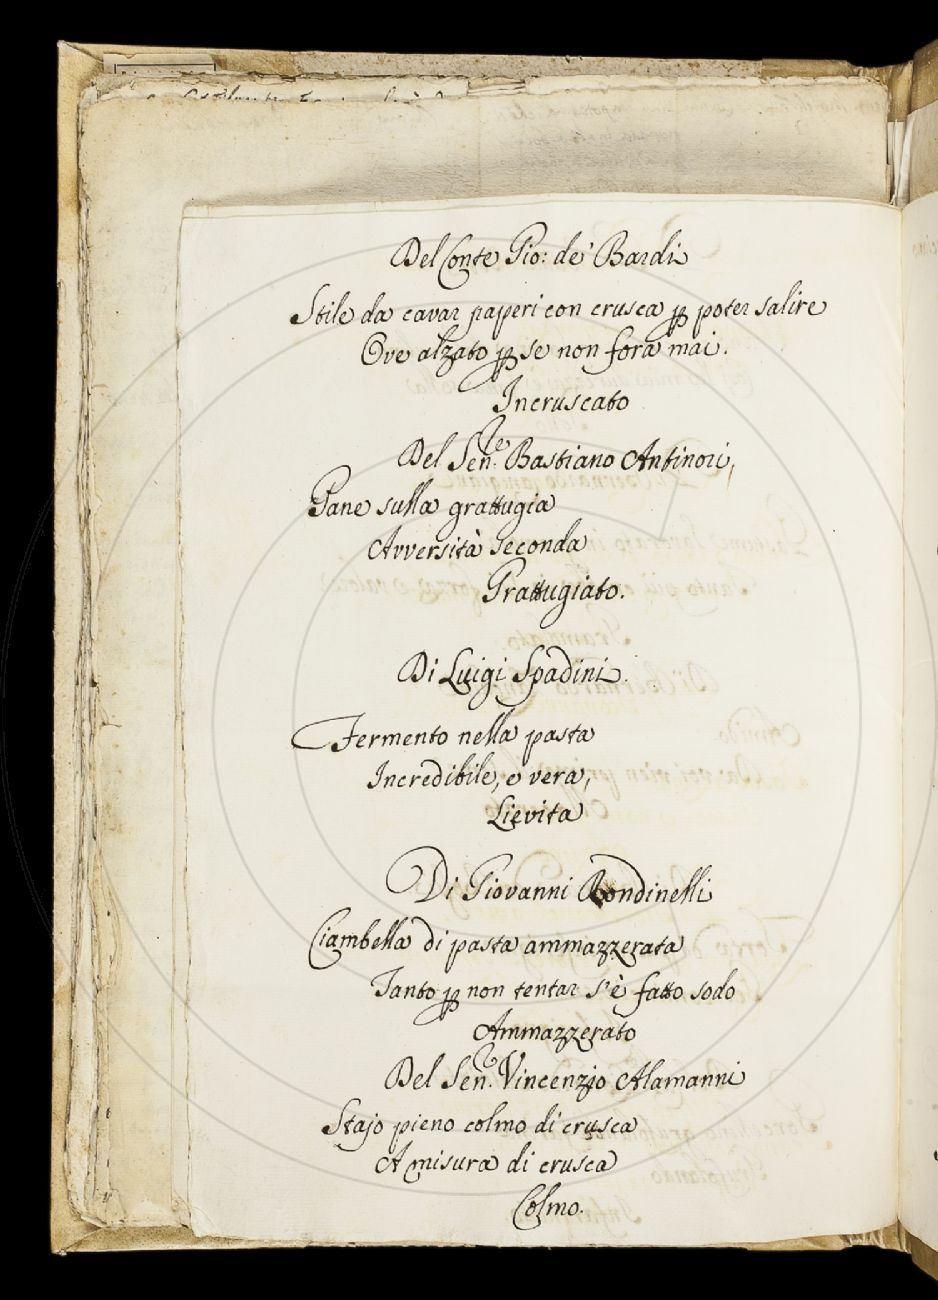 Del Conte Gio: de' Bardi
Stile da cavar paperi con crusca ꝑ poter salire
Ove alzato ꝑ se non fora mai.
Incruscato
Del Sen.re Bastiano Antinori,
Pane sulla grattugia
Avversità seconda
Grattugiato.
Di Luigi Spadini.
Fermento nella pasta
Incredibile, e vera,
Lievita
Di Giovanni Rondinelli
Ciambella di pasta ammazzerata
Tanto ꝑ non tentar s'è fatto sodo
Ammazzerato
Del Sen. Vincenzio Alamanni
Stajo pieno colmo di crusca
A misura di crusca
Colmo.